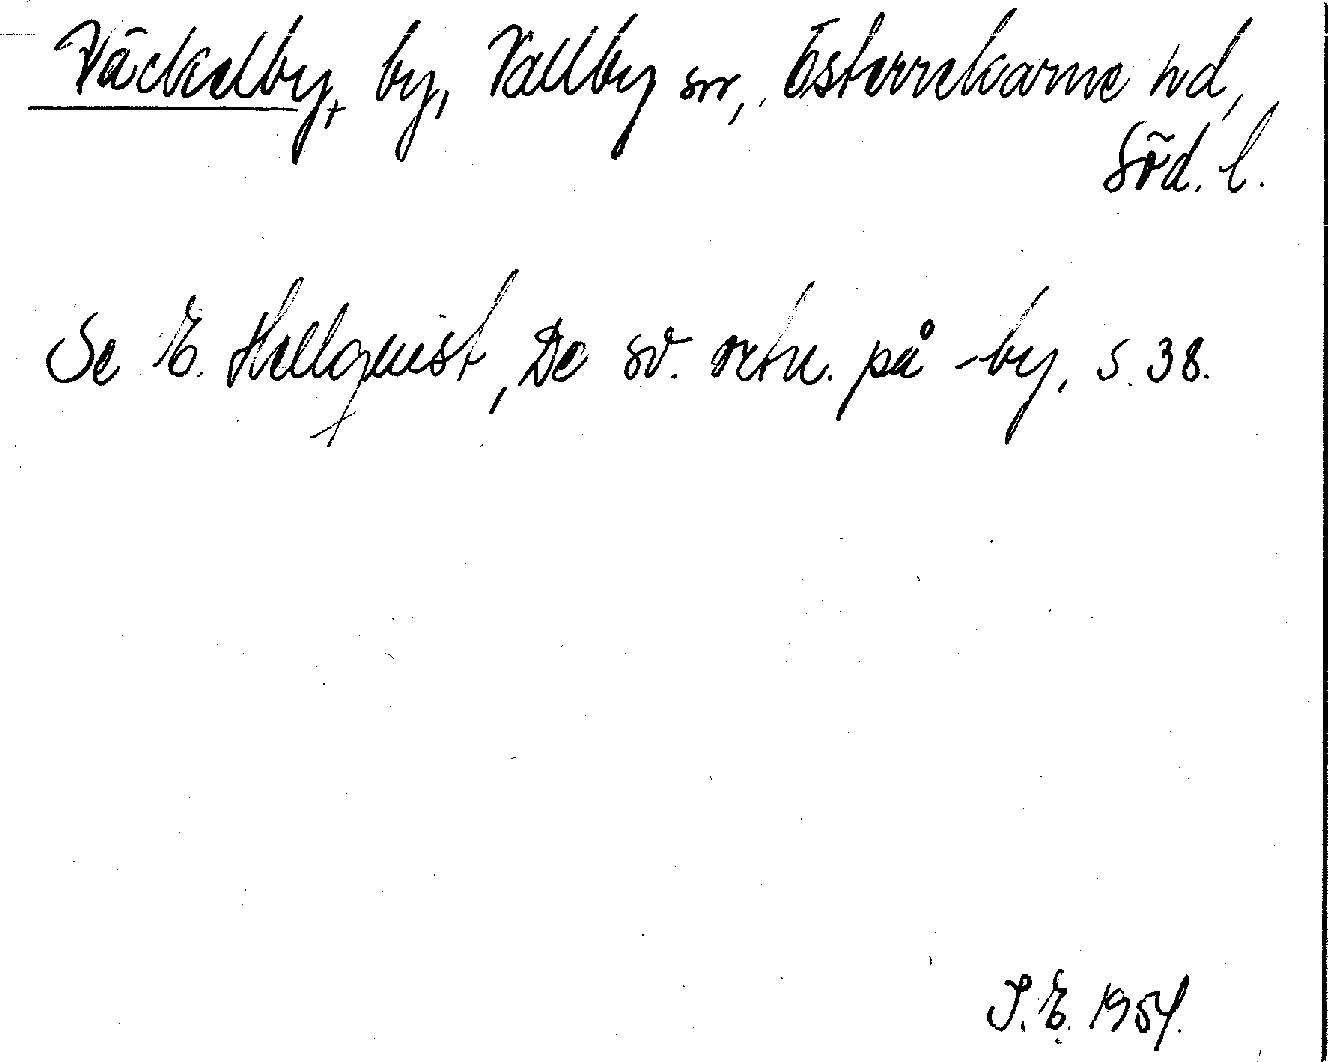 Väckelby, by, Vallby sn, Österrekarne hd,
Söd. l.
Se E. Hellquist, De sv. ortn. på -by, s. 38.
I. E. 1954.